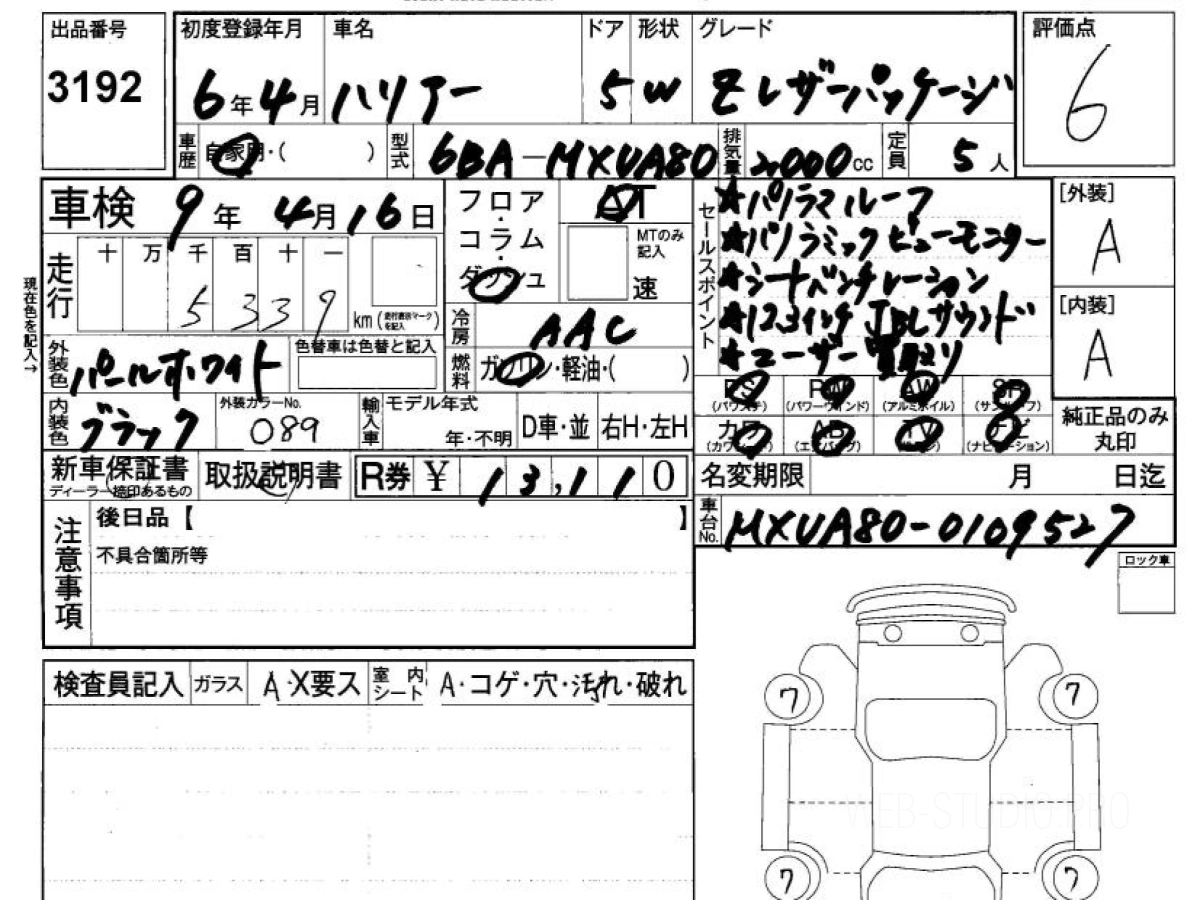 出品番号
3192
初度登録年月
6年4月
車名
ハリアー
ドア
5
形状
W
グレード
Z レザーパッケージ
評価点
6
車歴
自家用・( )
型式
6BA-MXUA80
排気量
2,000cc
定員
5人
車検
9年4月16日
フロア・コラム・ダッシュ
AT
MTのみ記入
速
セールスポイント
★パノラマルーフ
★パノラミックビューモニター
★シートベンチレーション
★12.3インチ JBLサウンド
★ユーザー買取り
[外装]
A
[内装]
A
走行
十 万 千 百 十 一
5 3 3 9
km (走行表示マークを記入)
現在色を記入→
外装色
パールホワイト
色替車は色替と記入
冷房
AAC
燃料
ガソリン・軽油・( )
内装色
ブラック
外装カラーNo.
089
輸入車
モデル年式
年・不明
D車・並
右H・左H
PS (パワステ)
PW (パワーウインド)
AW (アルミホイル)
SR (サンルーフ)
カワ (カワシート)
AB (エアバッグ)
TV (テレビ)
ナビ (ナビゲーション)
純正品のみ丸印
新車保証書
ディーラー捺印あるもの
取扱説明書
R券 ¥ 13,110
名変期限 月 日迄
車台No.
MXUA80-0109527
注意事項
後日品【 】
不具合箇所等
ロック車
検査員記入
ガラス
A・X要ス
室内シート
A・コゲ・穴・汚れ・破れ
7
7
7
7
WEB-STUDIO.PRO